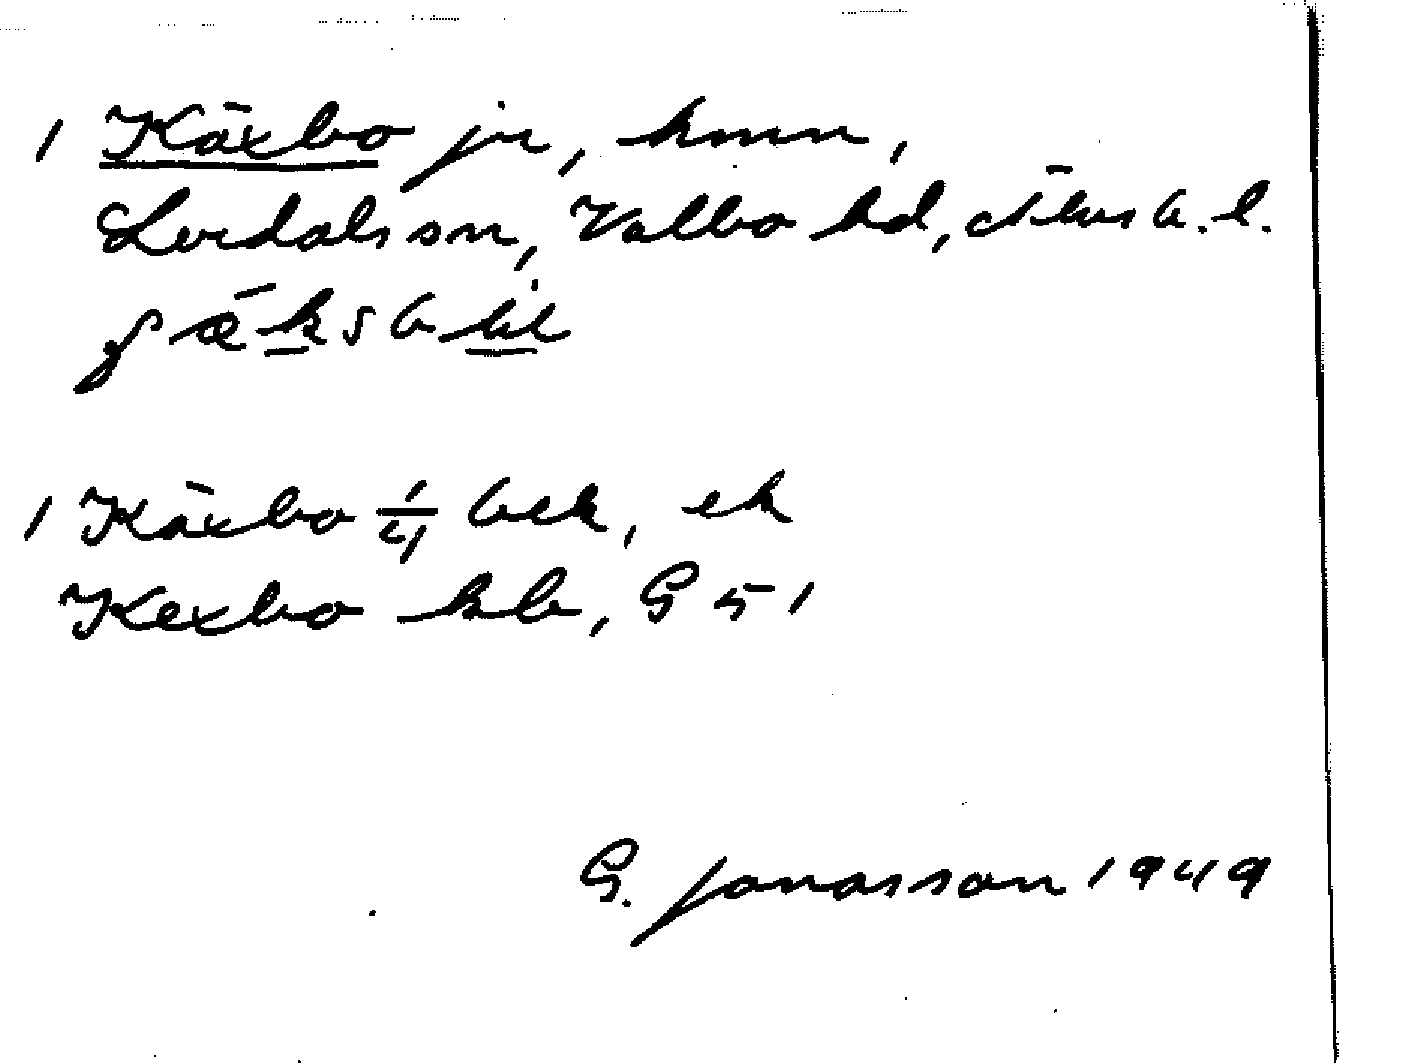 1 Käxbo jr, hmn,
Lerdals sn, Valbo hd, Älvsb. l.
1 Käxbo 1/4 bek, ek
Kexbo kb, G 51
G. Jonasson 1949